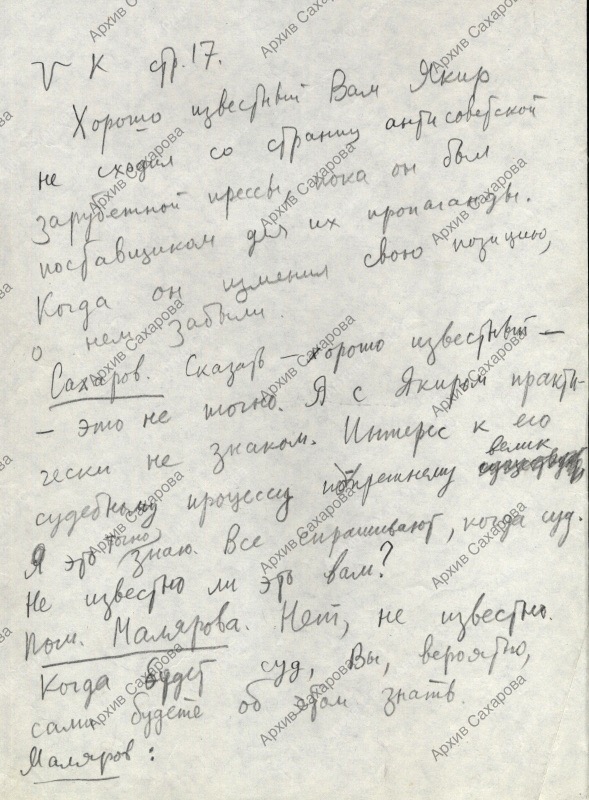 V К стр. 17.
Хорошо известный Вам Якир
не сходил со страниц антисоветской
зарубежной прессы, пока он был
поставщиком для их пропаганды.
Когда он изменил свою позицию,
о нем забыли.
Сахаров. Сказать – хорошо известный –
– это не точно. Я с Якиром практи-
чески не знаком. Интерес к его
судебному процессу попрежнему велик
Я это точно знаю. Все спрашивают, когда суд.
Не известно ли это вам?
Пом. Малярова. Нет, не известно.
Когда будет суд, Вы, вероятно,
сами будете об этом знать.
Маляров:
Архив Сахарова